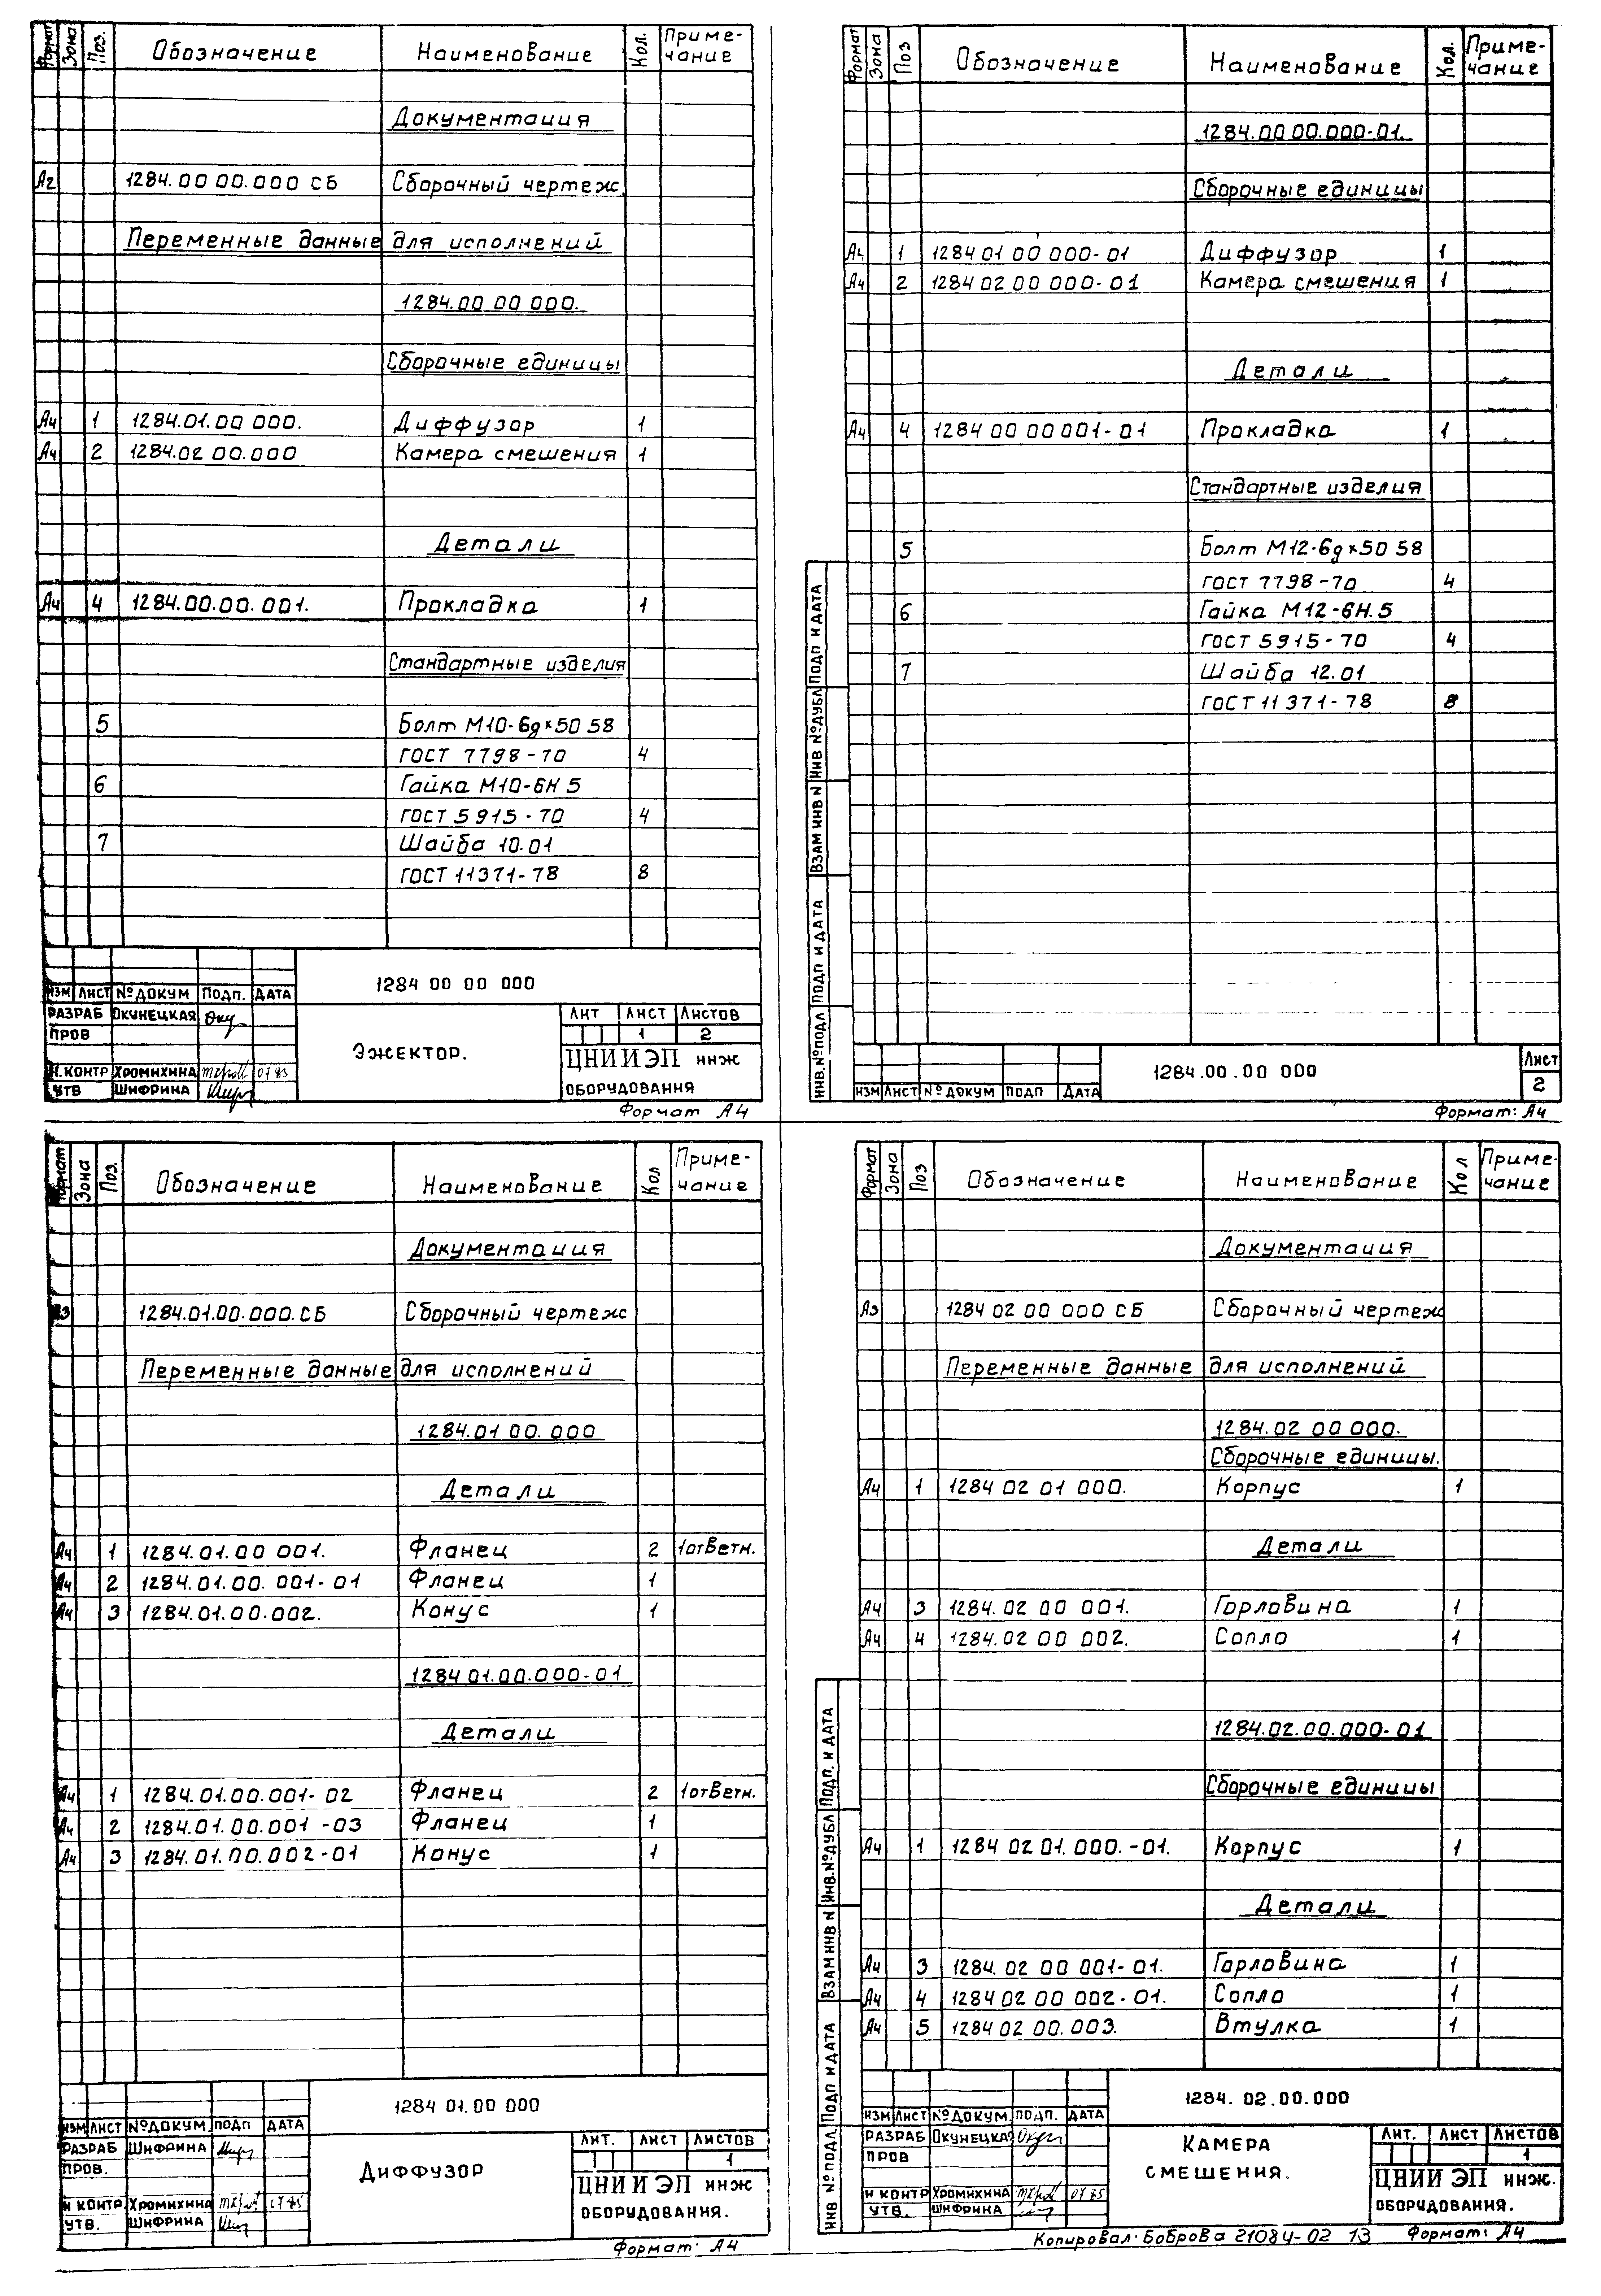 Формат Зона Поз. Обозначение Наименование Кол. Приме-
чание
Документация
А2 1284.00 00.000 СБ Сборочный чертеж
Переменные данные для исполнений
1284.00 00 000.
Сборочные единицы
А4 1 1284.01.00 000. Диффузор 1
А4 2 1284.02 00.000 Камера смешения 1
Детали
А4 4 1284.00.00.001. Прокладка 1
Стандартные изделия
5 Болт М10-6g×50 58
ГОСТ 7798-70 4
6 Гайка М10-6Н 5
ГОСТ 5915-70 4
7 Шайба 10.01
ГОСТ 11371-78 8
1284 00 00 000
ИЗМ ЛИСТ №ДОКУМ ПОДП. ДАТА
РАЗРАБ ОКУНЕЦКАЯ
ПРОВ
Н.КОНТР ХРОМИХИНА 07 85
УТВ ШИФРИНА
ЭЖЕКТОР.
ЛИТ ЛИСТ ЛИСТОВ
1 2
ЦНИИЭП ИНЖ
ОБОРУДОВАНИЯ
Формат А4
Формат Зона Поз Обозначение Наименование Кол. Приме-
чание
1284.00 00.000-01.
Сборочные единицы
А4 1 1284 01 00 000-01 Диффузор 1
А4 2 1284 02 00 000-01 Камера смешения 1
Детали
А4 4 1284 00 00 001-01 Прокладка 1
Стандартные изделия
5 Болт М12-6g×50 58
ГОСТ 7798-70 4
6 Гайка М12-6Н.5
ГОСТ 5915-70 4
7 Шайба 12.01
ГОСТ 11371-78 8
ИНВ.№ПОДЛ ПОДП И ДАТА ВЗАМ ИНВ N ИНВ №ДУБЛ ПОДП И ДАТА
ИЗМ ЛИСТ №ДОКУМ ПОДП ДАТА
1284.00.00 000
ЛИСТ
2
Формат: А4
Формат Зона Поз. Обозначение Наименование Кол Приме-
чание
Документация
А3 1284.01.00.000.СБ Сборочный чертеж
Переменные данные для исполнений
1284.01 00.000
Детали
А4 1 1284.01.00 001. Фланец 2 1ответн.
А4 2 1284.01.00.001-01 Фланец 1
А4 3 1284.01.00.002. Конус 1
1284 01.00.000-01
Детали
А4 1 1284.01.00.001-02 Фланец 2 1ответн.
А4 2 1284.01.00.001-03 Фланец 1
А4 3 1284.01.00.002-01 Конус 1
1284 01.00 000
ИЗМ ЛИСТ №ДОКУМ. ПОДП ДАТА
РАЗРАБ ШИФРИНА
ПРОВ.
Н КОНТР ХРОМИХИНА 07 85
УТВ. ШИФРИНА
ДИФФУЗОР
ЛИТ. ЛИСТ ЛИСТОВ
1
ЦНИИЭП ИНЖ
ОБОРУДОВАНИЯ.
Формат· А4
Формат Зона Поз Обозначение Наименование Кол Приме-
чание
Документация
А3 1284 02 00 000 СБ Сборочный чертеж
Переменные данные для исполнений
1284.02 00 000.
Сборочные единицы.
А4 1 1284 02 01 000. Корпус 1
Детали
А4 3 1284.02 00 001. Горловина 1
А4 4 1284.02 00 002. Сопло 1
1284.02.00.000-01
Сборочные единицы
А4 1 1284 02 01.000.-01. Корпус 1
Детали
А4 3 1284.02 00 001-01. Горловина 1
А4 4 1284 02 00 002-01. Сопло 1
А4 5 1284 02 00.003. Втулка 1
ИНВ №ПОДЛ. ПОДП И ДАТА ВЗАМ ИНВ N ИНВ.№ДУБЛ ПОДП. И ДАТА
1284. 02.00.000
ИЗМ ЛИСТ №ДОКУМ. ПОДП. ДАТА
РАЗРАБ ОКУНЕЦКАЯ
ПРОВ
Н КОНТР ХРОМИХИНА 07 85
УТВ. ШИФРИНА
КАМЕРА
СМЕШЕНИЯ.
ЛИТ. ЛИСТ ЛИСТОВ
1
ЦНИИЭП ИНЖ.
ОБОРУДОВАНИЯ.
Копировал· Боброва 21084-02 13 Формат: А4